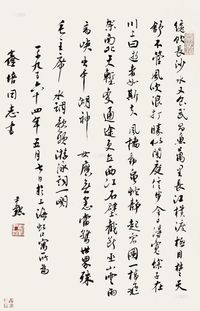 才飲長沙水又食武昌魚萬里長江橫渡極目楚天
舒不管風吹浪打勝似閑庭信步今日得寬餘子在
川上曰逝者如斯夫風檣動龜蛇靜起宏圖一橋飛
架南北天塹變通途更立西江石壁截斷巫山雲雨
高峽出平湖神女應無恙當驚世界殊
毛主席 水調歌頭游泳詞一闋
一千九百六十四年五月七日於上海虹口寓所为
鑫培同志書
尹默